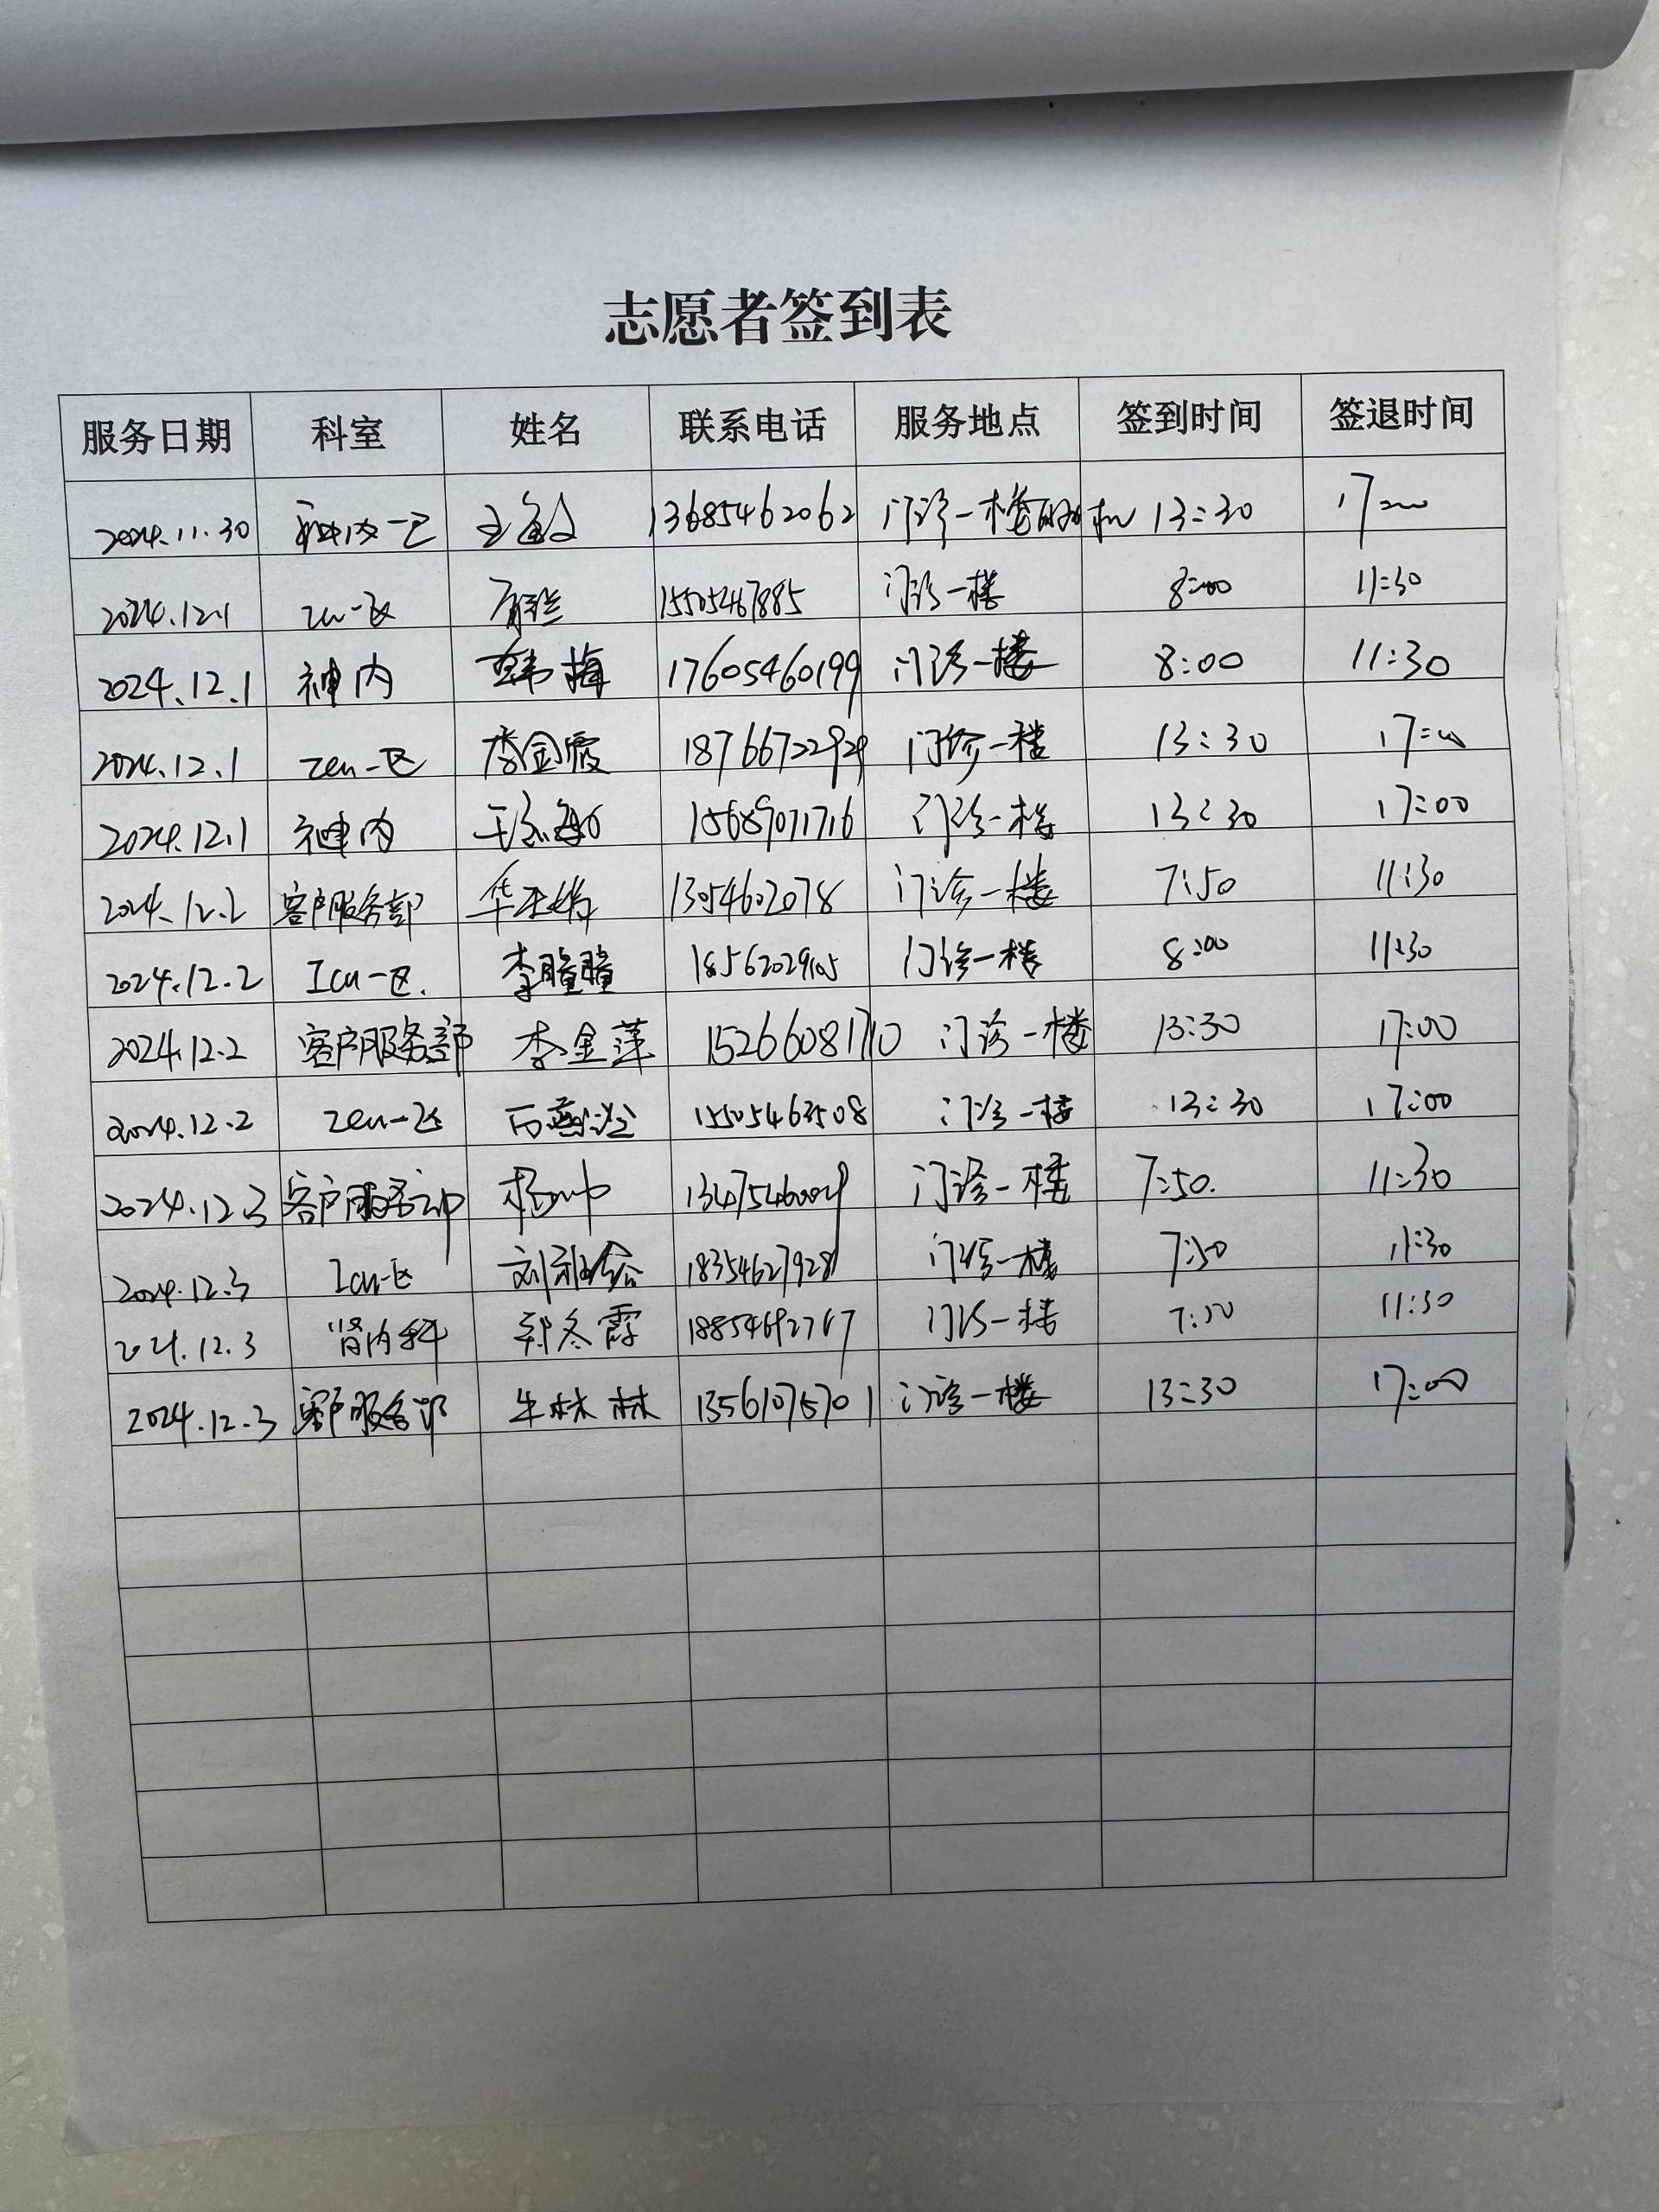 志愿者签到表
服务日期 科室 姓名 联系电话 服务地点 签到时间 签退时间
2024.11.30 神内一区 13685462062 门诊一楼 13:30 17:00
2024.12.1 Icu一区 15505467885 门诊一楼 8:00 11:30
2024.12.1 神内 韩梅 17605460199 门诊一楼 8:00 11:30
2024.12.1 Icu一区 李金霞 18766722929 门诊一楼 13:30 17:00
2024.12.1 神内 15689071716 门诊一楼 13:30 17:00
2024.12.2 客户服务部 华 13054602078 门诊一楼 7:50 11:30
2024.12.2 Icu一区. 李瞳瞳 18562029105 门诊一楼 8:00 11:30
2024.12.2 客户服务部 李金萍 15266081710 门诊一楼 13:30 17:00
2024.12.2 Icu一区 15505463508 门诊一楼 13:30 17:00
2024.12.3 客户服务部 杨 门诊一楼 7:50. 11:30
2024.12.3 Icu一区 刘 18354627928 门诊一楼 7:50 11:30
2024.12.3 肾内科 郭冬霞 门诊一楼 7:50 11:30
2024.12.3 客户服务部 牛林林 13561075701 门诊一楼 13:30 17:00